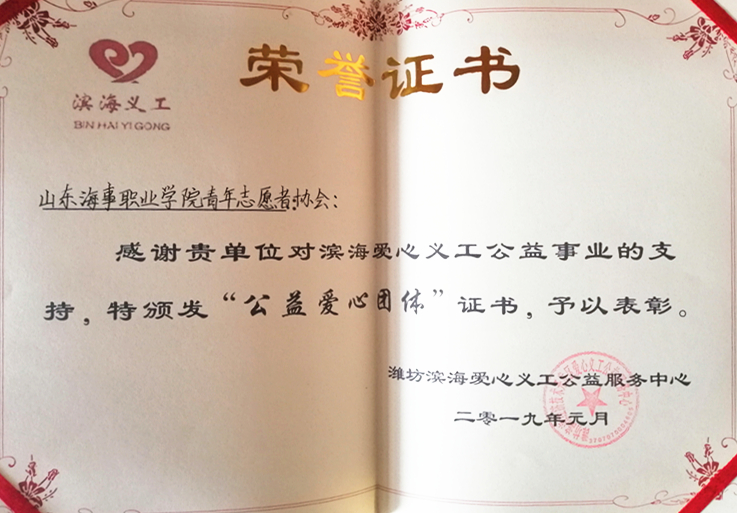 荣誉证书
滨海义工
BIN HAI YI GONG
山东海事职业学院青年志愿者协会：
感谢贵单位对滨海爱心义工公益事业的支
持，特颁发“公益爱心团体”证书，予以表彰。
潍坊滨海爱心义工公益服务中心
二零一九年元月